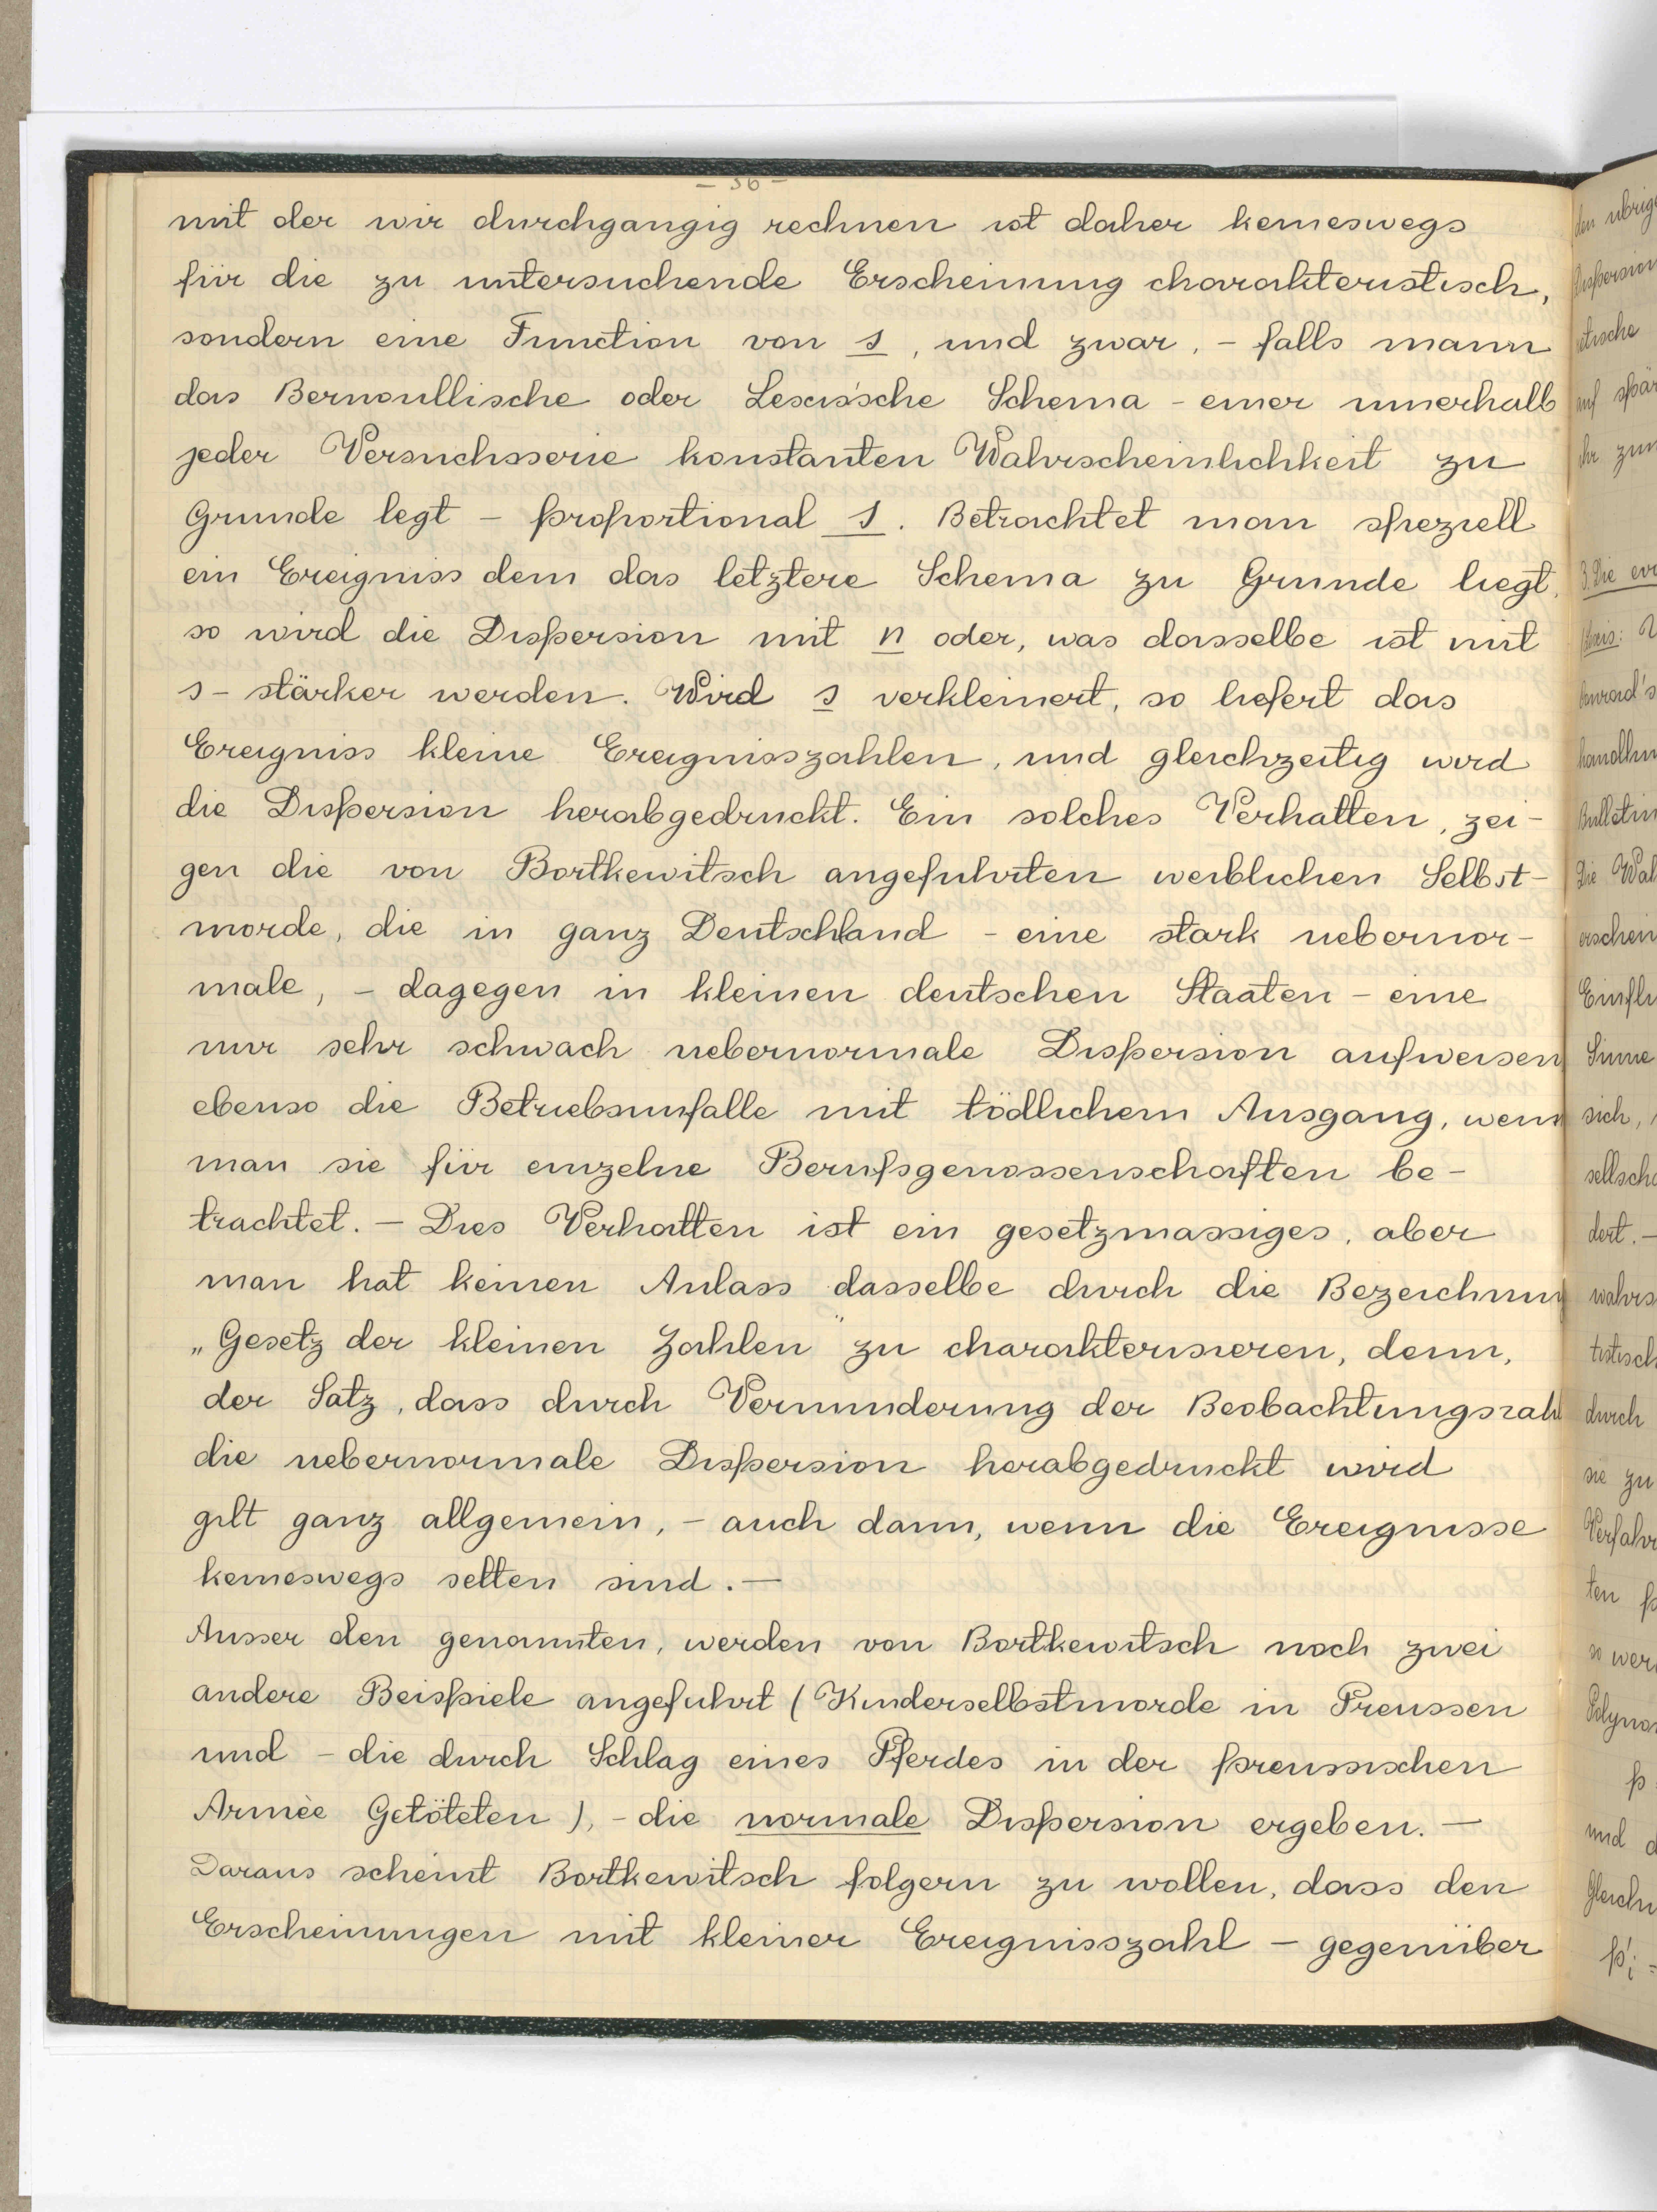 - 36 -
mit der wir durchgangig rechnen ist daher keineswegs
für die zu untersuchende Erscheinung charakteristisch,
sondern eine Function von s, und zwar, - falls mann
das Bernoullische oder Lexis'sche Schema - einer innerhalb
jeder Versuchsserie konstanten Wahrscheinlichkeit zu
Grunde legt - proportional s. Betrachtet man speziell
ein Ereigniss dem das letztere Schema zu Grunde liegt,
so wird die Dispersion mit n oder, was dasselbe ist mit
s - stärker werden. Wird s verkleinert, so liefert das
Ereigniss kleine Ereignisszahlen, und gleichzeitig wird
die Dispersion herabgedruckt. Ein solches Verhalten, zei-
gen die von Bortkewitsch angefuhrten weiblichen Selbst-
morde, die in ganz Deutschland - eine stark uebernor-
male, - dagegen in kleinen deutschen Staaten - eine
nur sehr schwach uebernormale Dispersion aufweisen
ebenso die Betriebsunfalle mit tödlichem Ausgang, wenn
man sie für einzelne Berufsgenossenschaften be-
trachtet. - Dies Verhalten ist ein gesetzmassiges, aber
man hat keinen Anlass dasselbe durch die Bezeichnung
„Gesetz der kleinen Zahlen" zu charakterisieren, denn,
der Satz, dass durch Verminderung der Beobachtungszahl
die uebernormale Dispersion herabgedruckt wird
gilt ganz allgemein, - auch dann, wenn die Ereignisse
keineswegs selten sind. -
Ausser den genannten, werden von Bortkewitsch noch zwei
andere Beispiele angefuhrt (Kinderselbstmorde in Preussen
und - die durch Schlag eines Pferdes in der preussischen
Armèe Getöteten), - die normale Dispersion ergeben. -
Daraus scheint Bortkewitsch folgern zu wollen, dass den
Erscheinungen mit kleiner Ereignisszahl - gegenüber
den ubrige
Dispersion
auf spär
ihr zum
3. Die
Conrad's
Bulletin
Die Wal
erschein
Einflu
Sinne
sich,
sellscha
dert. -
wahrs
tistisch
durch
sie zu
Verfahr
ten p
so wer
Polyno
p
und d
Gleichu
p'i =